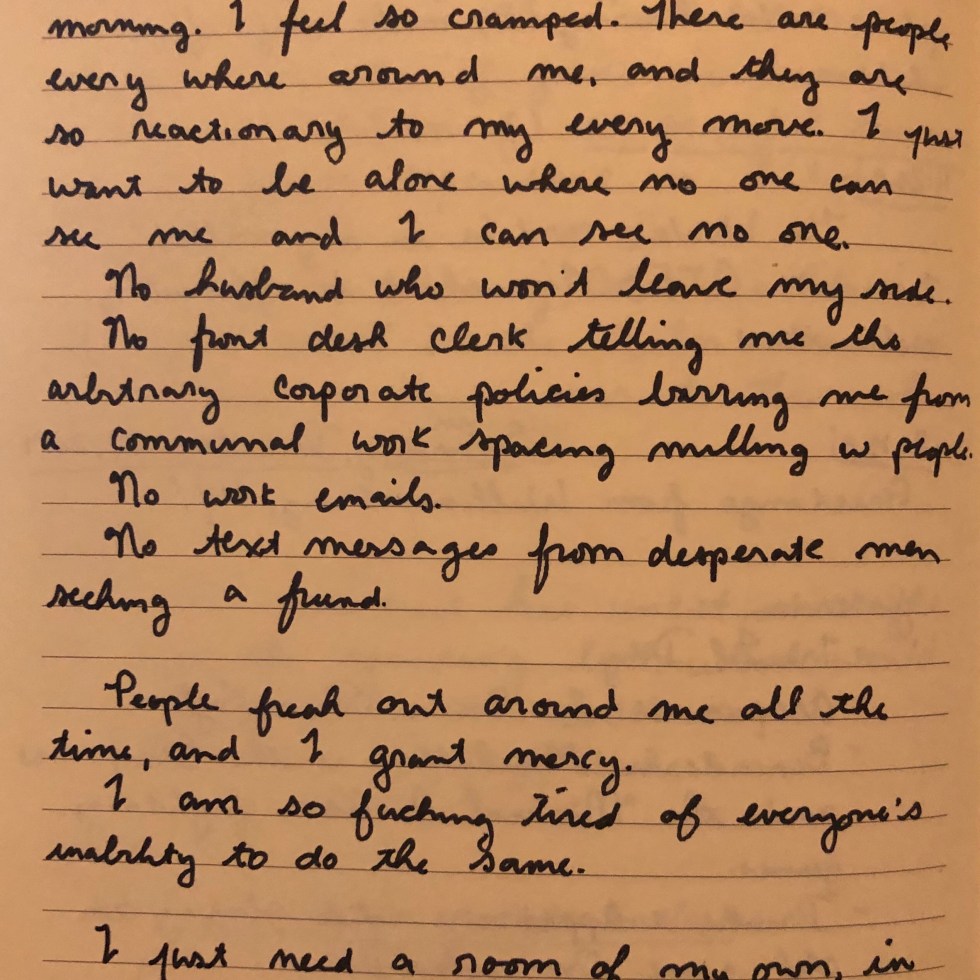 morning. I feel so cramped. There are people
every where around me, and they are
so reactionary to my every move. I just
want to be alone where no one can
see me and I can see no one.
No husband who won't leave my side.
No front desk clerk telling me the
arbitrary corporate policies barring me from
a communal work spacing milling w people.
No work emails.
No text messages from desperate men
seeking a friend.
People freak out around me all the
time, and I grant mercy.
I am so fucking tired of everyone's
inability to do the same.
I just need a room of my own, in